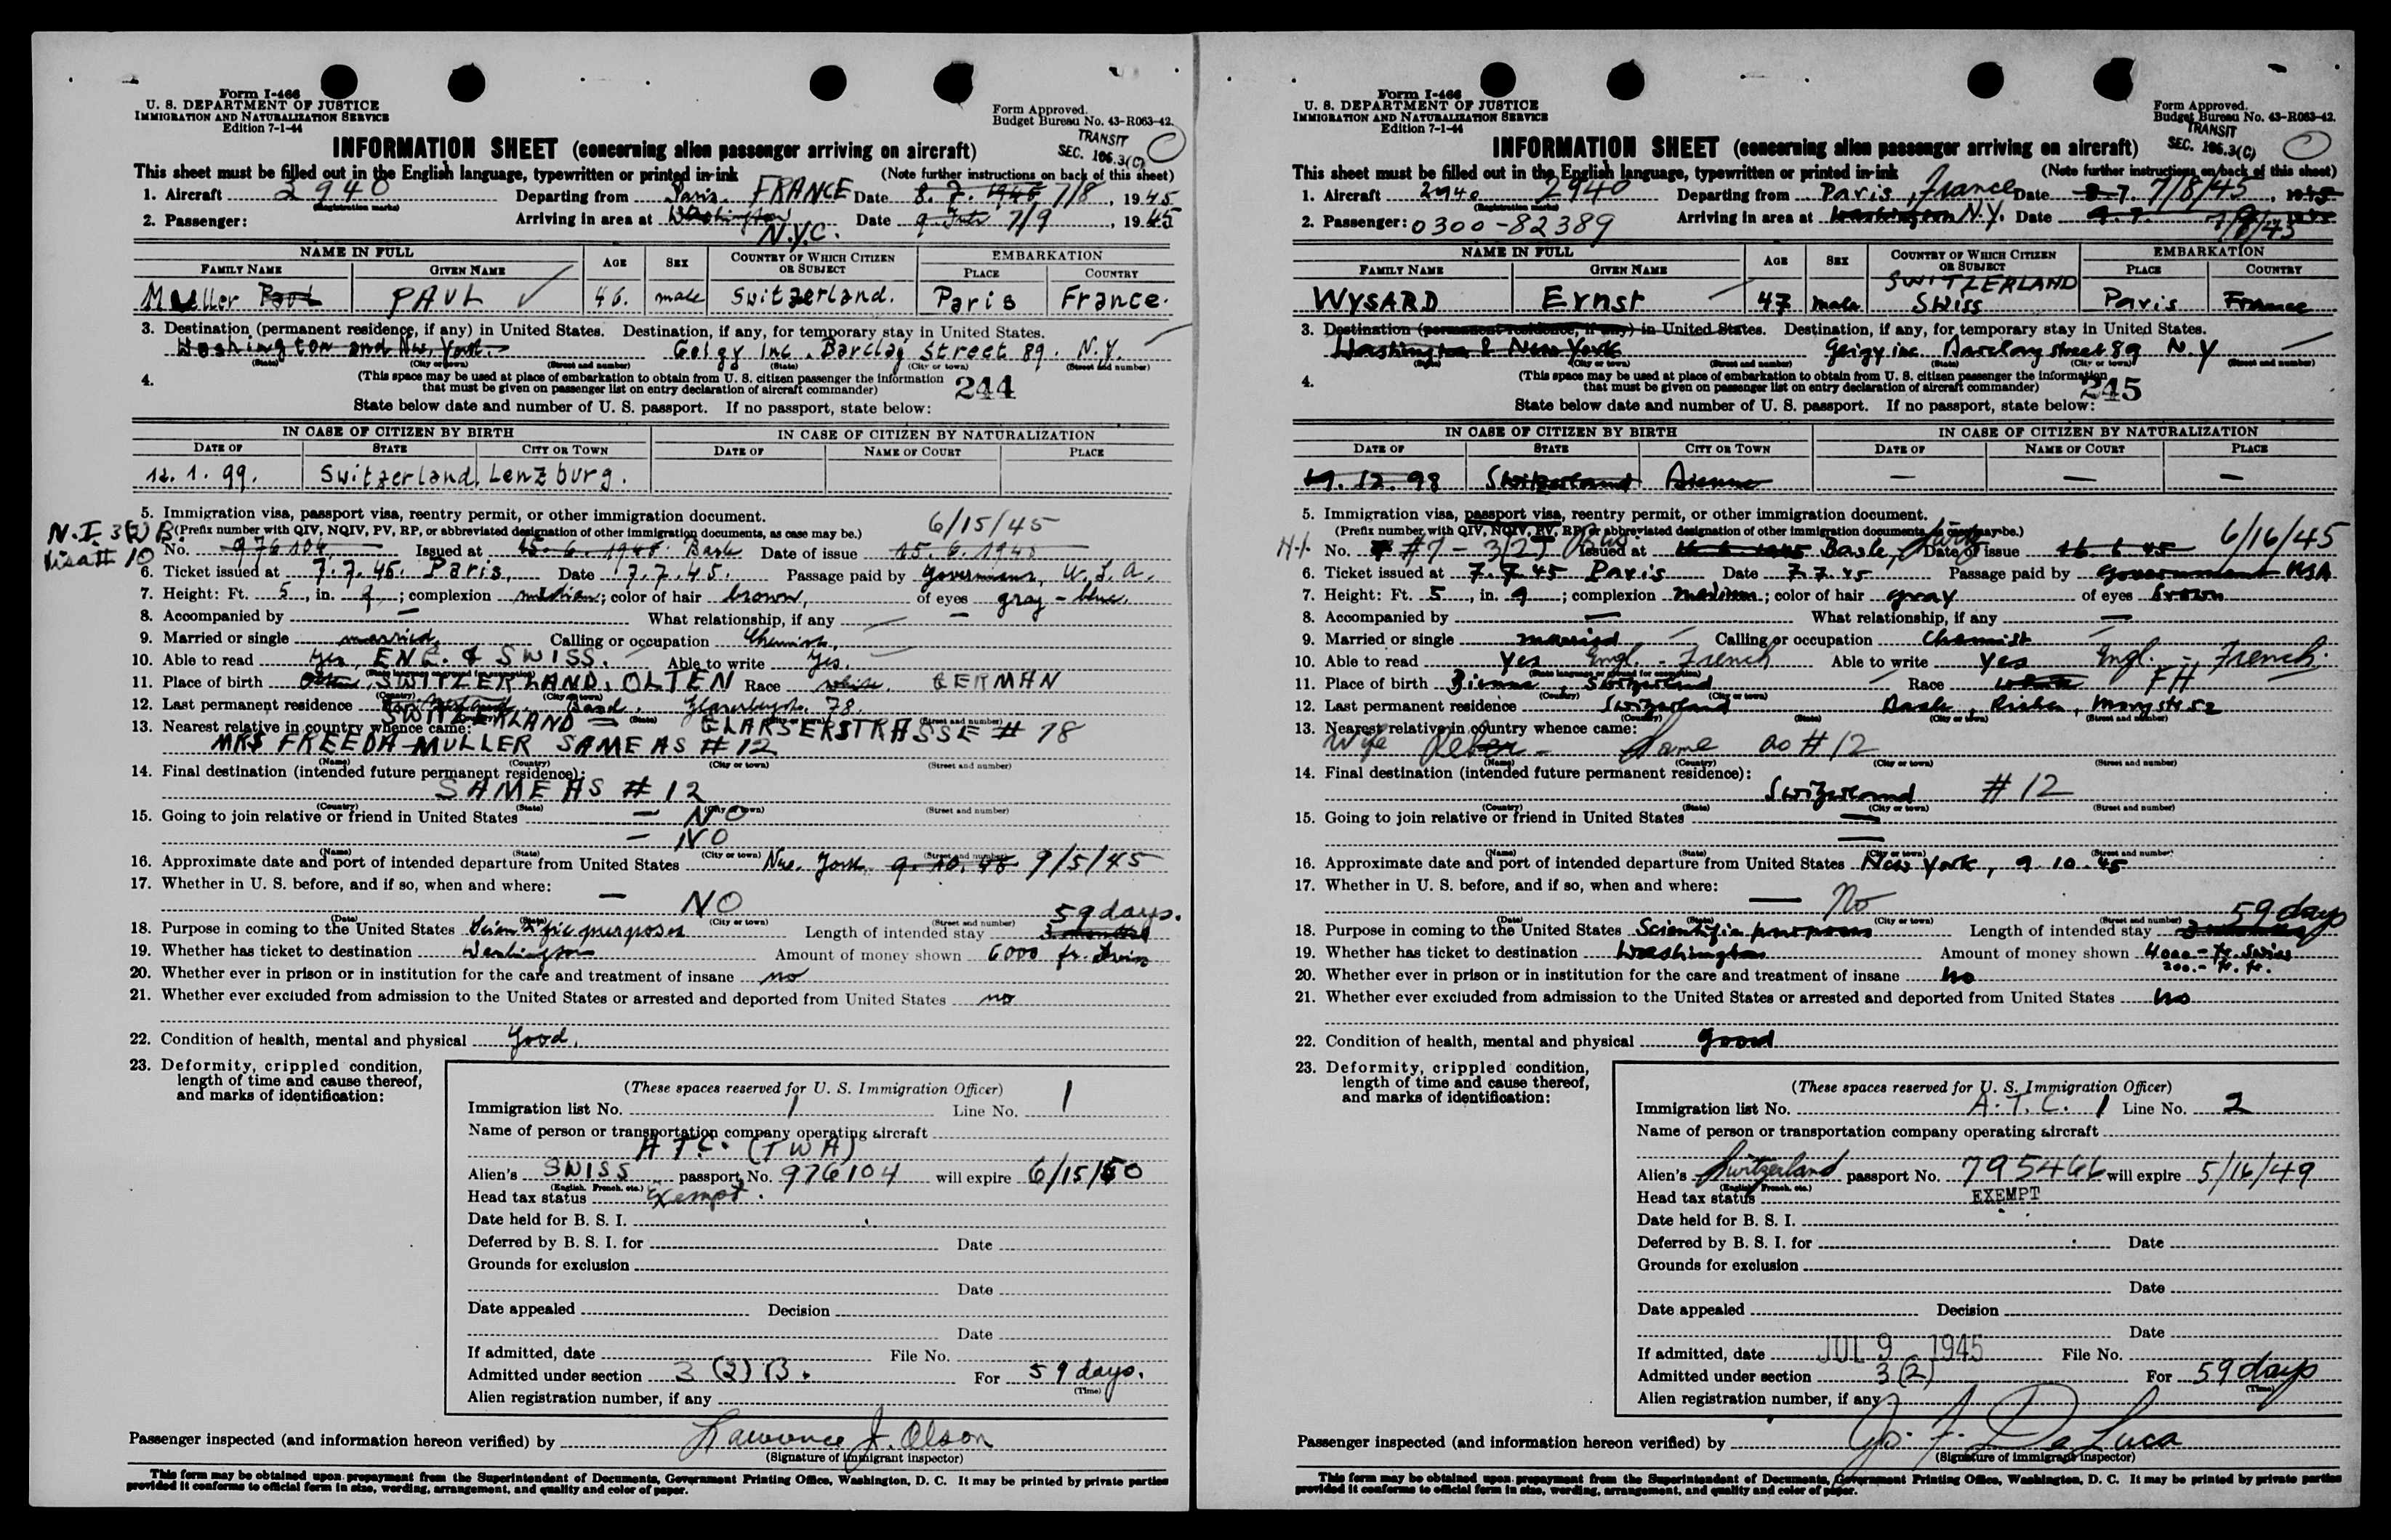 Form I-466
U. S. DEPARTMENT OF JUSTICE
IMMIGRATION AND NATURALIZATION SERVICE
Edition 7-1-44
Form Approved.
Budget Bureau No. 43-R063-42.
TRANSIT
SEC. 106.3(C)
INFORMATION SHEET (concerning alien passenger arriving on aircraft)
This sheet must be filled out in the English language, typewritten or printed in ink (Note further instructions on back of this sheet)
1. Aircraft 2940 Departing from Paris. FRANCE Date 8. 7. 1945 7/8, 1945
(Registration marks)
2. Passenger: Arriving in area at Washington Date 9. 7/9, 1945
N.Y.C.
NAME IN FULL AGE SEX COUNTRY OF WHICH CITIZEN OR SUBJECT EMBARKATION
FAMILY NAME GIVEN NAME PLACE COUNTRY
Mueller Paul PAUL 46. male Switzerland. Paris France.
3. Destination (permanent residence, if any) in United States. Destination, if any, for temporary stay in United States.
Washington and New York. Geigy Inc. Barclay Street 89. N.Y.
(State) (City or town) (Street and number) (State) (City or town) (Street and number)
4. (This space may be used at place of embarkation to obtain from U. S. citizen passenger the information
that must be given on passenger list on entry declaration of aircraft commander) 244
State below date and number of U. S. passport. If no passport, state below:
IN CASE OF CITIZEN BY BIRTH IN CASE OF CITIZEN BY NATURALIZATION
DATE OF STATE CITY OR TOWN DATE OF NAME OF COURT PLACE
12. 1. 99. Switzerland, Lenzburg.
5. Immigration visa, passport visa, reentry permit, or other immigration document. 6/15/45
N.I. 3(2) B (Prefix number with QIV, NQIV, PV, RP, or abbreviated designation of other immigration documents, as case may be.)
Visa # 10 No. 976104 Issued at 15. 6. 1945. Basle Date of issue 15. 6. 1945
6. Ticket issued at 7. 7. 45. Paris, Date 7. 7. 45. Passage paid by Government, U.S.A.
7. Height: Ft. 5, in. ; complexion medium; color of hair brown, of eyes gray - blue.
8. Accompanied by — What relationship, if any —
9. Married or single married Calling or occupation Chemist,
10. Able to read yes, ENG. & SWISS. Able to write Yes.
11. Place of birth Olten, SWITZERLAND, OLTEN Race white. GERMAN
(Country) (City or town)
12. Last permanent residence Basel. 78.
SWITZERLAND (State) (Street and number)
13. Nearest relative in country whence came: GLARSERSTRASSE # 78
MRS FREEDA MULLER SAME AS # 12
(Name) (Country) (City or town) (Street and number)
14. Final destination (intended future permanent residence):
SAME AS # 12
(Country) (State) (City or town) (Street and number)
15. Going to join relative or friend in United States — NO
— NO
(Name) (State) (City or town) (Street and number)
16. Approximate date and port of intended departure from United States New York 9. 10. 45 9/5/45
17. Whether in U. S. before, and if so, when and where:
— NO
(Date) (State) (City or town) (Street and number) 59 days.
18. Purpose in coming to the United States Scientific purposes Length of intended stay 3 months
19. Whether has ticket to destination Washington Amount of money shown 6000 fr. Swiss
20. Whether ever in prison or in institution for the care and treatment of insane no
21. Whether ever excluded from admission to the United States or arrested and deported from United States no
22. Condition of health, mental and physical good.
23. Deformity, crippled condition,
length of time and cause thereof,
and marks of identification:
(These spaces reserved for U. S. Immigration Officer)
Immigration list No. 1 Line No. 1
Name of person or transportation company operating aircraft
ATC. (TWA)
Alien's SWISS passport No. 976104 will expire 6/15/50
(English, French, etc.)
Head tax status Exempt.
Date held for B. S. I.
Deferred by B. S. I. for Date
Grounds for exclusion
Date
Date appealed Decision
Date
If admitted, date File No.
Admitted under section 3 (2) B. For 59 days.
(Time)
Alien registration number, if any
Passenger inspected (and information hereon verified) by Lawrence J. Olson
(Signature of immigrant inspector)
This form may be obtained upon prepayment from the Superintendent of Documents, Government Printing Office, Washington, D. C. It may be printed by private parties
provided it conforms to official form in size, wording, arrangement, and quality and color of paper.
Form I-466
U. S. DEPARTMENT OF JUSTICE
IMMIGRATION AND NATURALIZATION SERVICE
Edition 7-1-44
Form Approved.
Budget Bureau No. 43-R063-42.
TRANSIT
SEC. 106.3(C)
INFORMATION SHEET (concerning alien passenger arriving on aircraft)
This sheet must be filled out in the English language, typewritten or printed in ink (Note further instructions on back of this sheet)
1. Aircraft 2940 2940 Departing from Paris, France Date 8.7. 7/8/45, 1945
(Registration marks)
2. Passenger: 0300-82389 Arriving in area at Washington N.Y. Date 9.7. 1945
NAME IN FULL AGE SEX COUNTRY OF WHICH CITIZEN OR SUBJECT EMBARKATION
FAMILY NAME GIVEN NAME PLACE COUNTRY
SWITZERLAND
WYSARD Ernst 47 male Swiss Paris France
3. Destination (permanent residence, if any) in United States. Destination, if any, for temporary stay in United States.
Washington & New York Geigy inc Barclay street 89 N.Y
(State) (City or town) (Street and number) (State) (City or town) (Street and number)
4. (This space may be used at place of embarkation to obtain from U. S. citizen passenger the information
that must be given on passenger list on entry declaration of aircraft commander) 245
State below date and number of U. S. passport. If no passport, state below:
IN CASE OF CITIZEN BY BIRTH IN CASE OF CITIZEN BY NATURALIZATION
DATE OF STATE CITY OR TOWN DATE OF NAME OF COURT PLACE
19. 12. 98 Switzerland Bienne — — —
5. Immigration visa, passport visa, reentry permit, or other immigration document.
(Prefix number with QIV, NQIV, PV, RP, or abbreviated designation of other immigration documents, as case may be.) 6/16/45
No. #7 - 3(2) Issued at 16 6 1945 Basle, Date of issue 16. 6 45
6. Ticket issued at 7. 7. 45 Paris Date 7.7.45 Passage paid by Government USA
7. Height: Ft. 5, in. 9; complexion medium; color of hair gray of eyes brown
8. Accompanied by — What relationship, if any —
9. Married or single married Calling or occupation Chemist
10. Able to read Yes Engl. - French Able to write Yes Engl. - French.
11. Place of birth Bienne, Switzerland Race white FH
(Country) (City or town)
12. Last permanent residence Switzerland Basle, Riehen,
(Country) (State) (City or town) (Street and number)
13. Nearest relative in country whence came:
Wife - Same as # 12
(Name) (Country) (City or town) (Street and number)
14. Final destination (intended future permanent residence):
Switzerland # 12
(Country) (State) (City or town) (Street and number)
15. Going to join relative or friend in United States —
—
(Name) (City or town) (Street and number)
16. Approximate date and port of intended departure from United States New York, 9. 10. 45
17. Whether in U. S. before, and if so, when and where:
— No
(Date) (State) (City or town) (Street and number) 59 days
18. Purpose in coming to the United States Scientific purposes Length of intended stay 3 months
19. Whether has ticket to destination Washington Amount of money shown 4000 - fr. Swiss
200.- fr. fr.
20. Whether ever in prison or in institution for the care and treatment of insane No
21. Whether ever excluded from admission to the United States or arrested and deported from United States No
22. Condition of health, mental and physical good
23. Deformity, crippled condition,
length of time and cause thereof,
and marks of identification:
(These spaces reserved for U. S. Immigration Officer)
Immigration list No. A.T.C. 1 Line No. 2
Name of person or transportation company operating aircraft
Alien's Switzerland passport No. 795466 will expire 5/16/49
(English, French, etc.)
Head tax status EXEMPT
Date held for B. S. I.
Deferred by B. S. I. for Date
Grounds for exclusion
Date
Date appealed Decision
Date
If admitted, date JUL 9 1945 File No.
Admitted under section 3(2) For 59 days
(Time)
Alien registration number, if any
Passenger inspected (and information hereon verified) by Jo. F. De Luca
(Signature of immigrant inspector)
This form may be obtained upon prepayment from the Superintendent of Documents, Government Printing Office, Washington, D. C. It may be printed by private parties
provided it conforms to official form in size, wording, arrangement, and quality and color of paper.